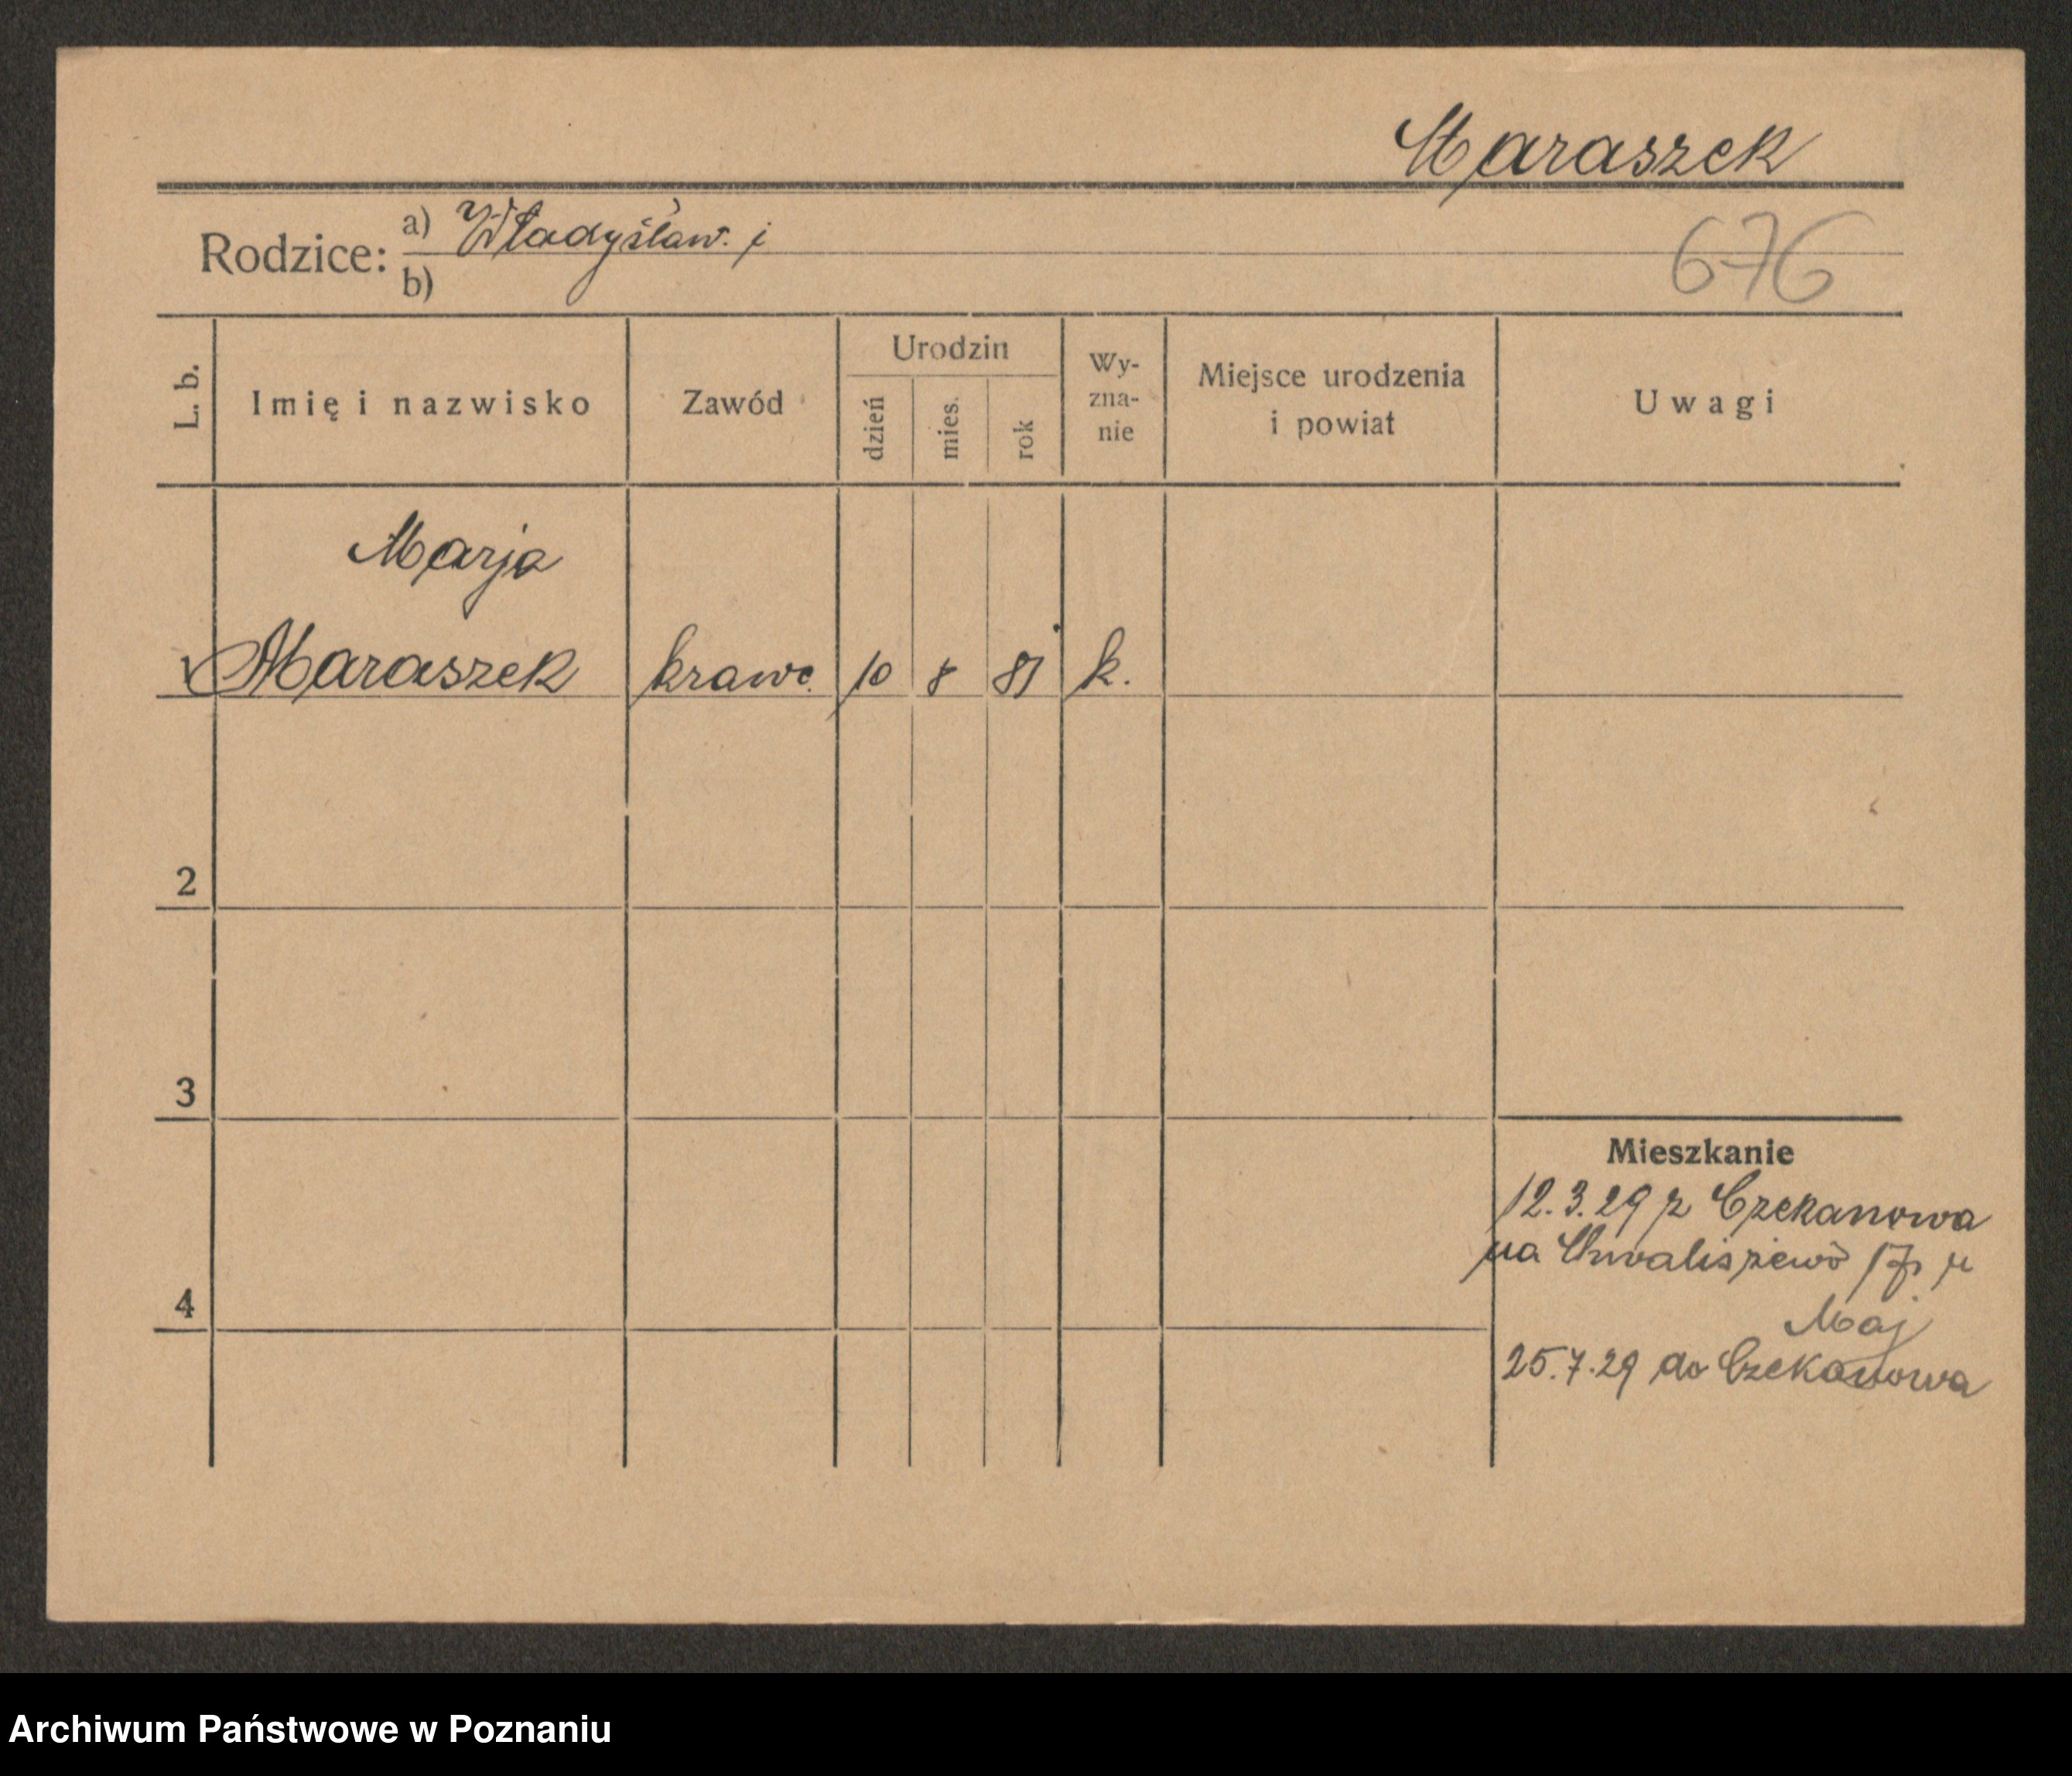 Maraszek
Rodzice: a) Władysław. i
b)
676
L. b.
Imię i nazwisko
Zawód
Urodzin
dzień
mies.
rok
Wy-
zna-
nie
Miejsce urodzenia
i powiat
Uwagi
Marja
1 Maraszek krawc. 10 8 81 k.
2
3
4
Mieszkanie
12.3.29 z Czekanowa
na Chwaliszewo 17
Maj
25.7.29 do Czekanowa
Archiwum Państwowe w Poznaniu